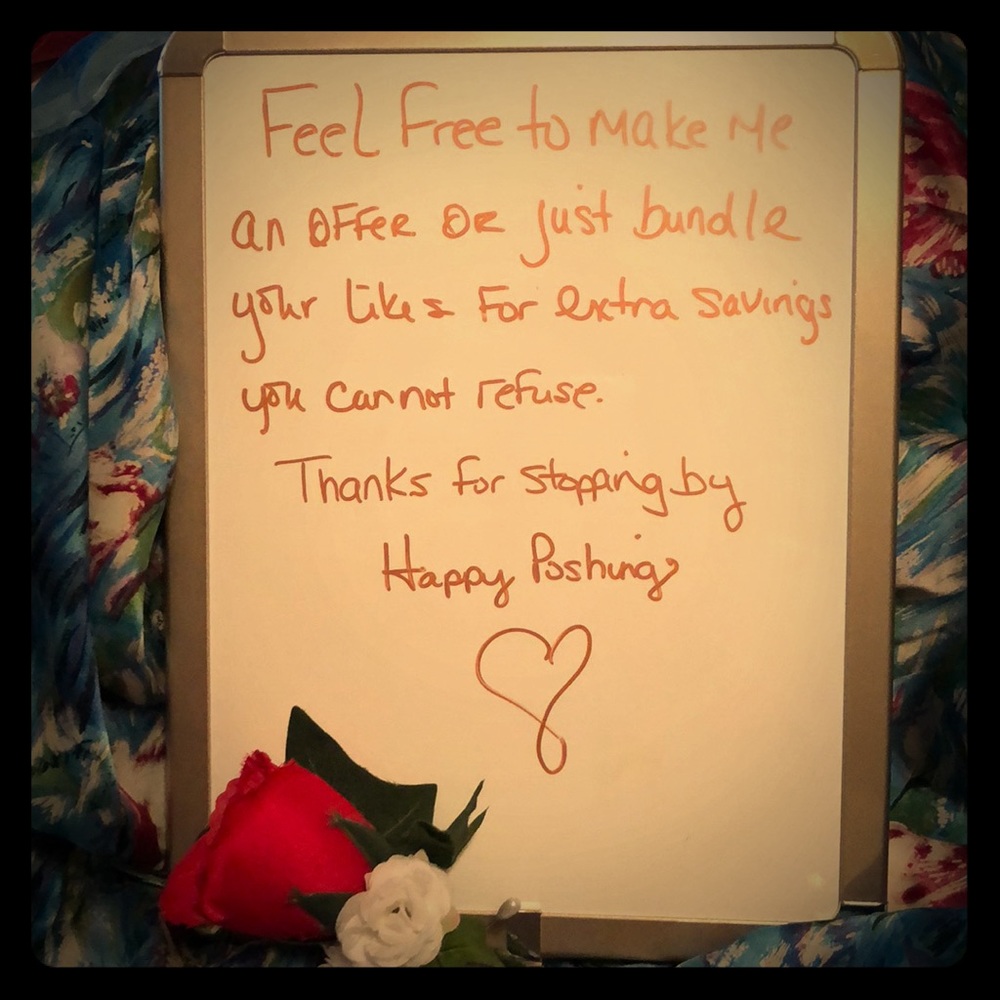 Feel Free to Make Me
an OFFer OR just bundle
your likes For extra savings
you cannot refuse.
Thanks for stopping by
Happy Poshing